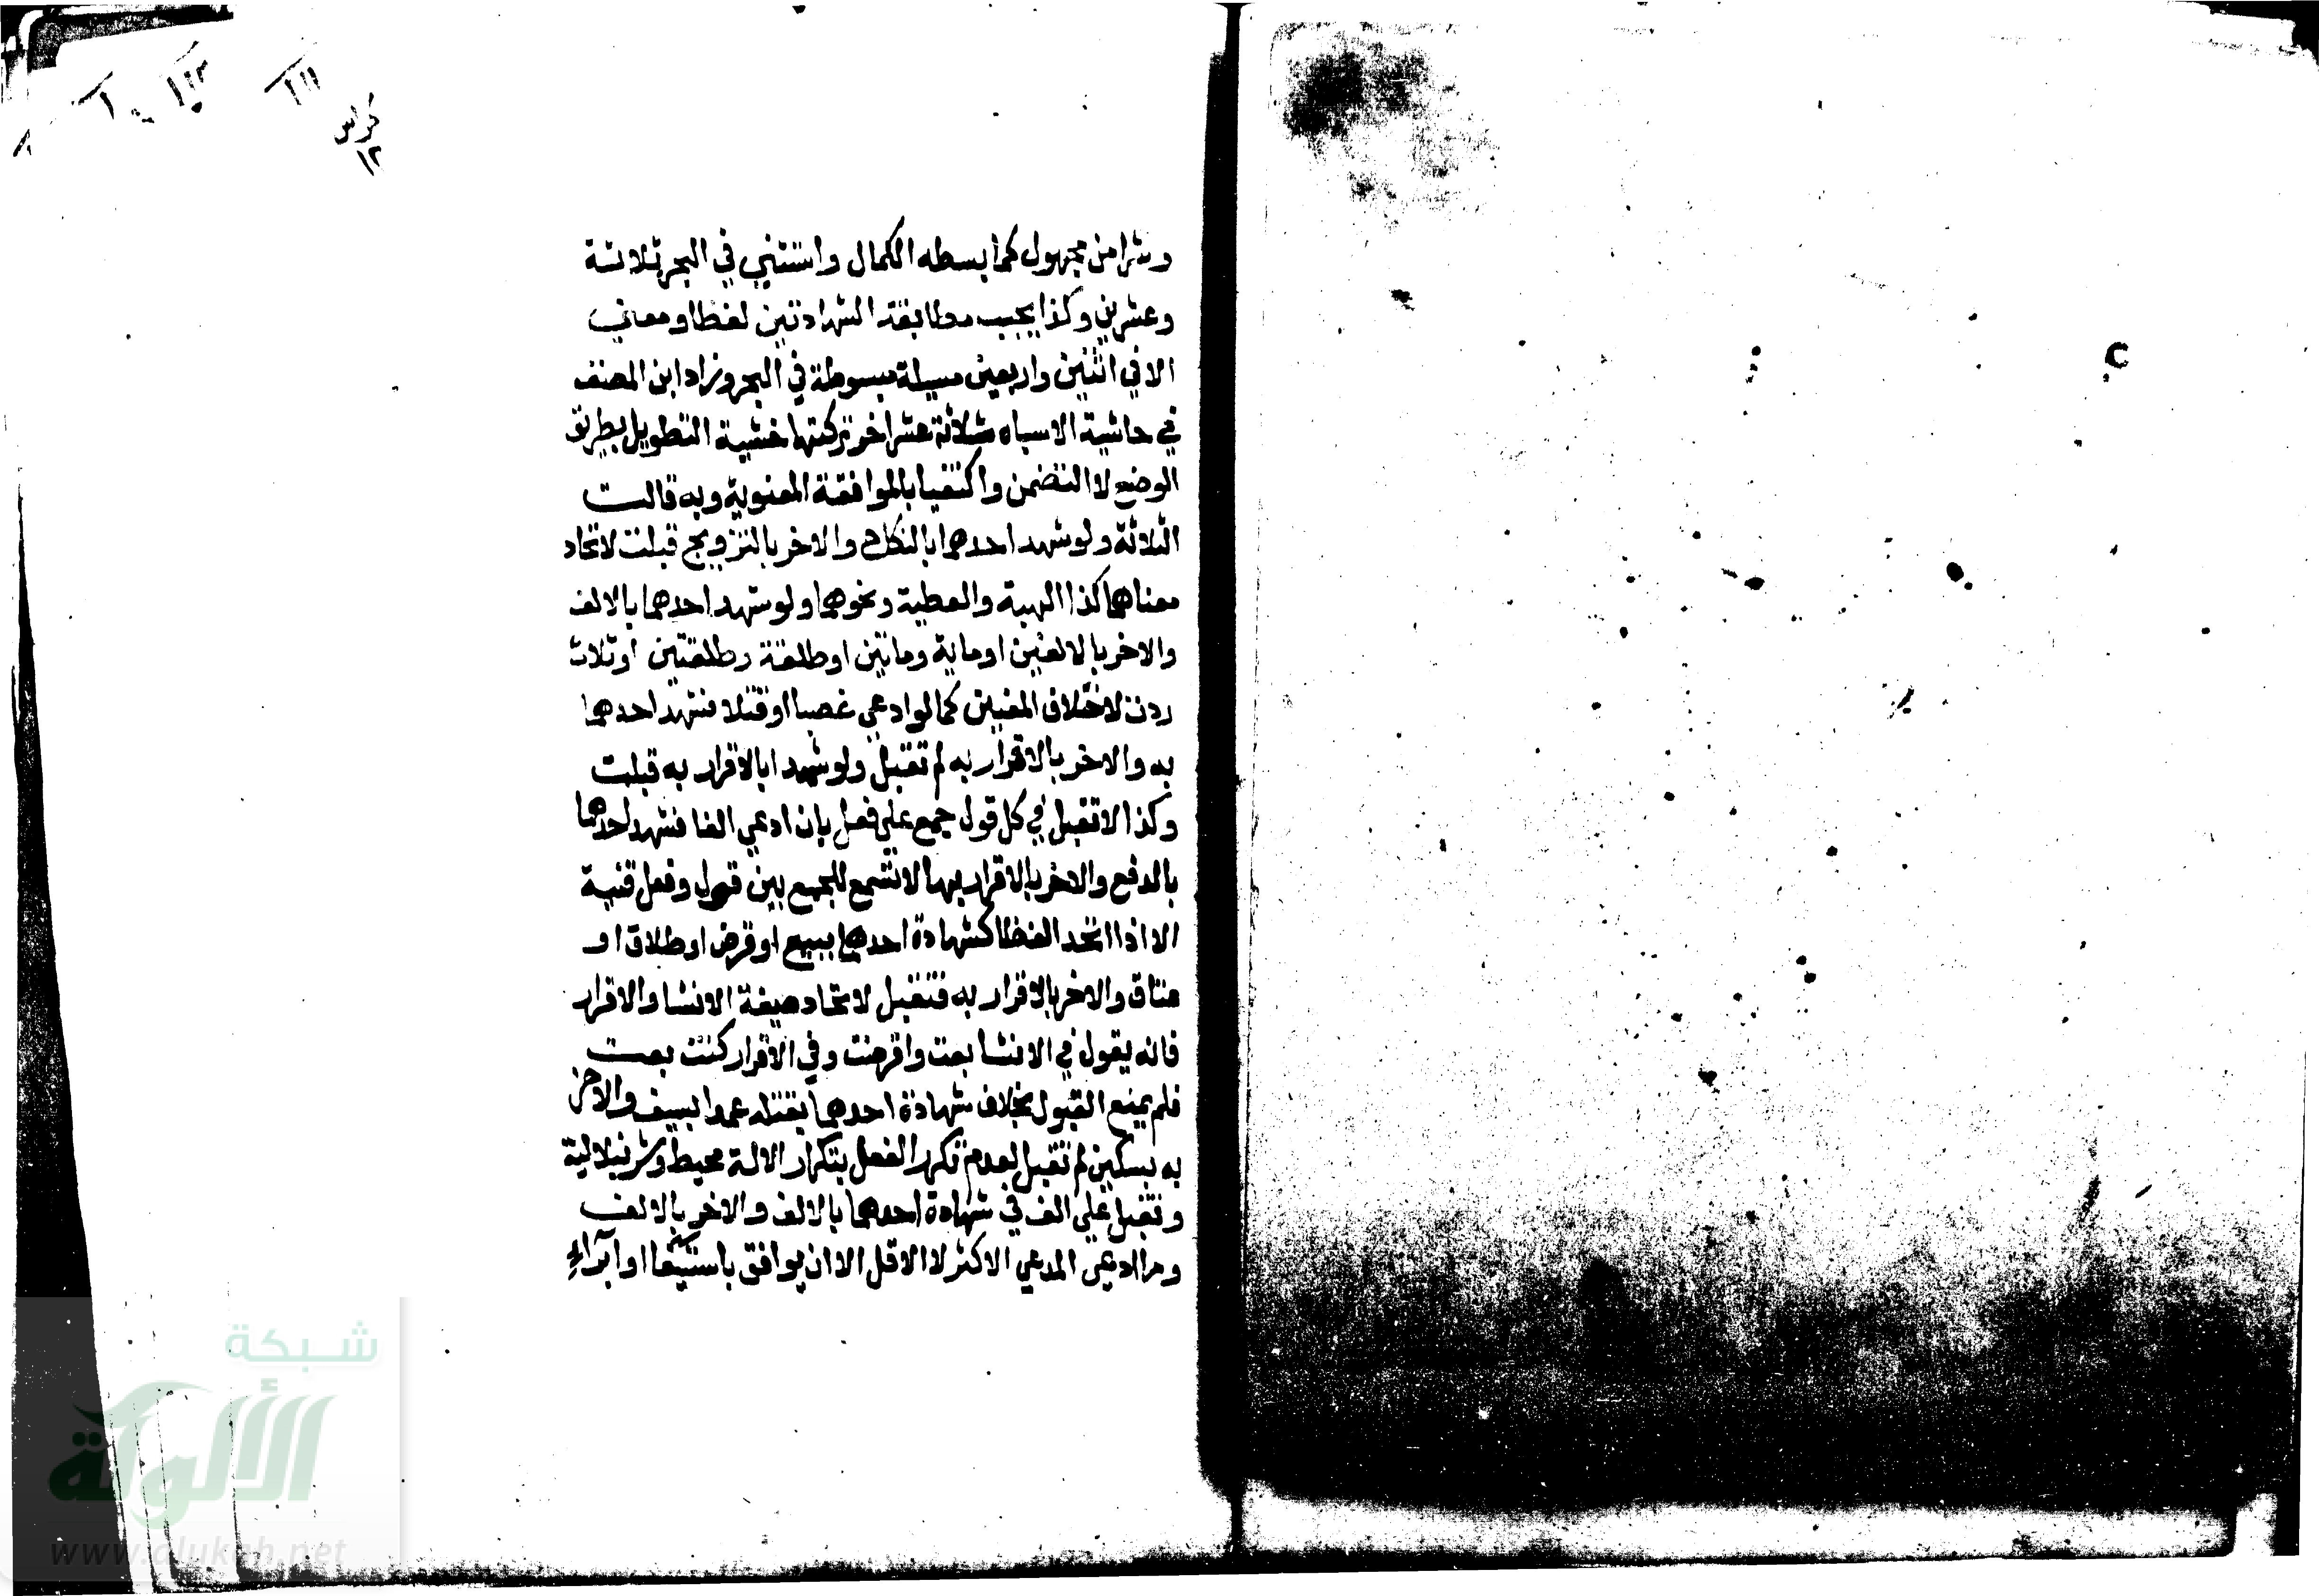 كراس
١٢
وشرا من مجهول كما بسطه الكمال واستثني في البحر ثلاثة
وعشرين وكذا يجب مطابقة الشهادتين لفظا ومعني
الا في اثنين واربعين مسيلة مبسوطة في البحر وزاد ابن المصنف
في حاشية الاسباه ثلاثة عشر اخر تركتها خشية التطويل بطريق
الوضع لا التضمن واكتفيا بالموافقة المعنوية وبه قالت
الثلاثة ولو شهد احدهما بالنكاح والاخر بالتزويج قبلت لاتحاد
معناهما كذا الهبة والعطية ونحوهما ولو شهد احدهما بالالف
والاخر بالالفين او ماية وماتين او طلقة وطلقتين او ثلاث
ردت لاختلاف المعنيين كما لو ادعي غصبا او قتلا فشهد احدهما
به والاخر بالاقرار به لم تقبل ولو شهدا بالاقرار به قبلت
وكذا لا تقبل في كل قول جمع علي فعل بان ادعي الفا فشهد احدهما
بالدفع والاخر بالاقرار بها لا تسمع للجمع بين قول وفعل قنية
الا اذا اتحد الفظا كشهادة احدهما ببيع او قرض او طلاق او
عتاق والاخر بالاقرار به فتقبل لاتحاد صيغة الانشا والاقرار
فانه يقول في الانشا بعت واقرضت وفي الاقرار كنت بعت
فلم يمنع القبول بخلاف شهادة احدهما بقتله عمدا بسيف والاخر
به بسكين لم تقبل لعدم تكرر الفعل بتكرار الالة محيط وشرنبلالية
وتقبل علي الف في شهادة احدهما بالالف والاخر بالالف
ومرا ادعي المدعي الاكثر لا الاقل الا ان يوافق باستيفا او ابراء
شبكة
الألوكة
www.alukah.net